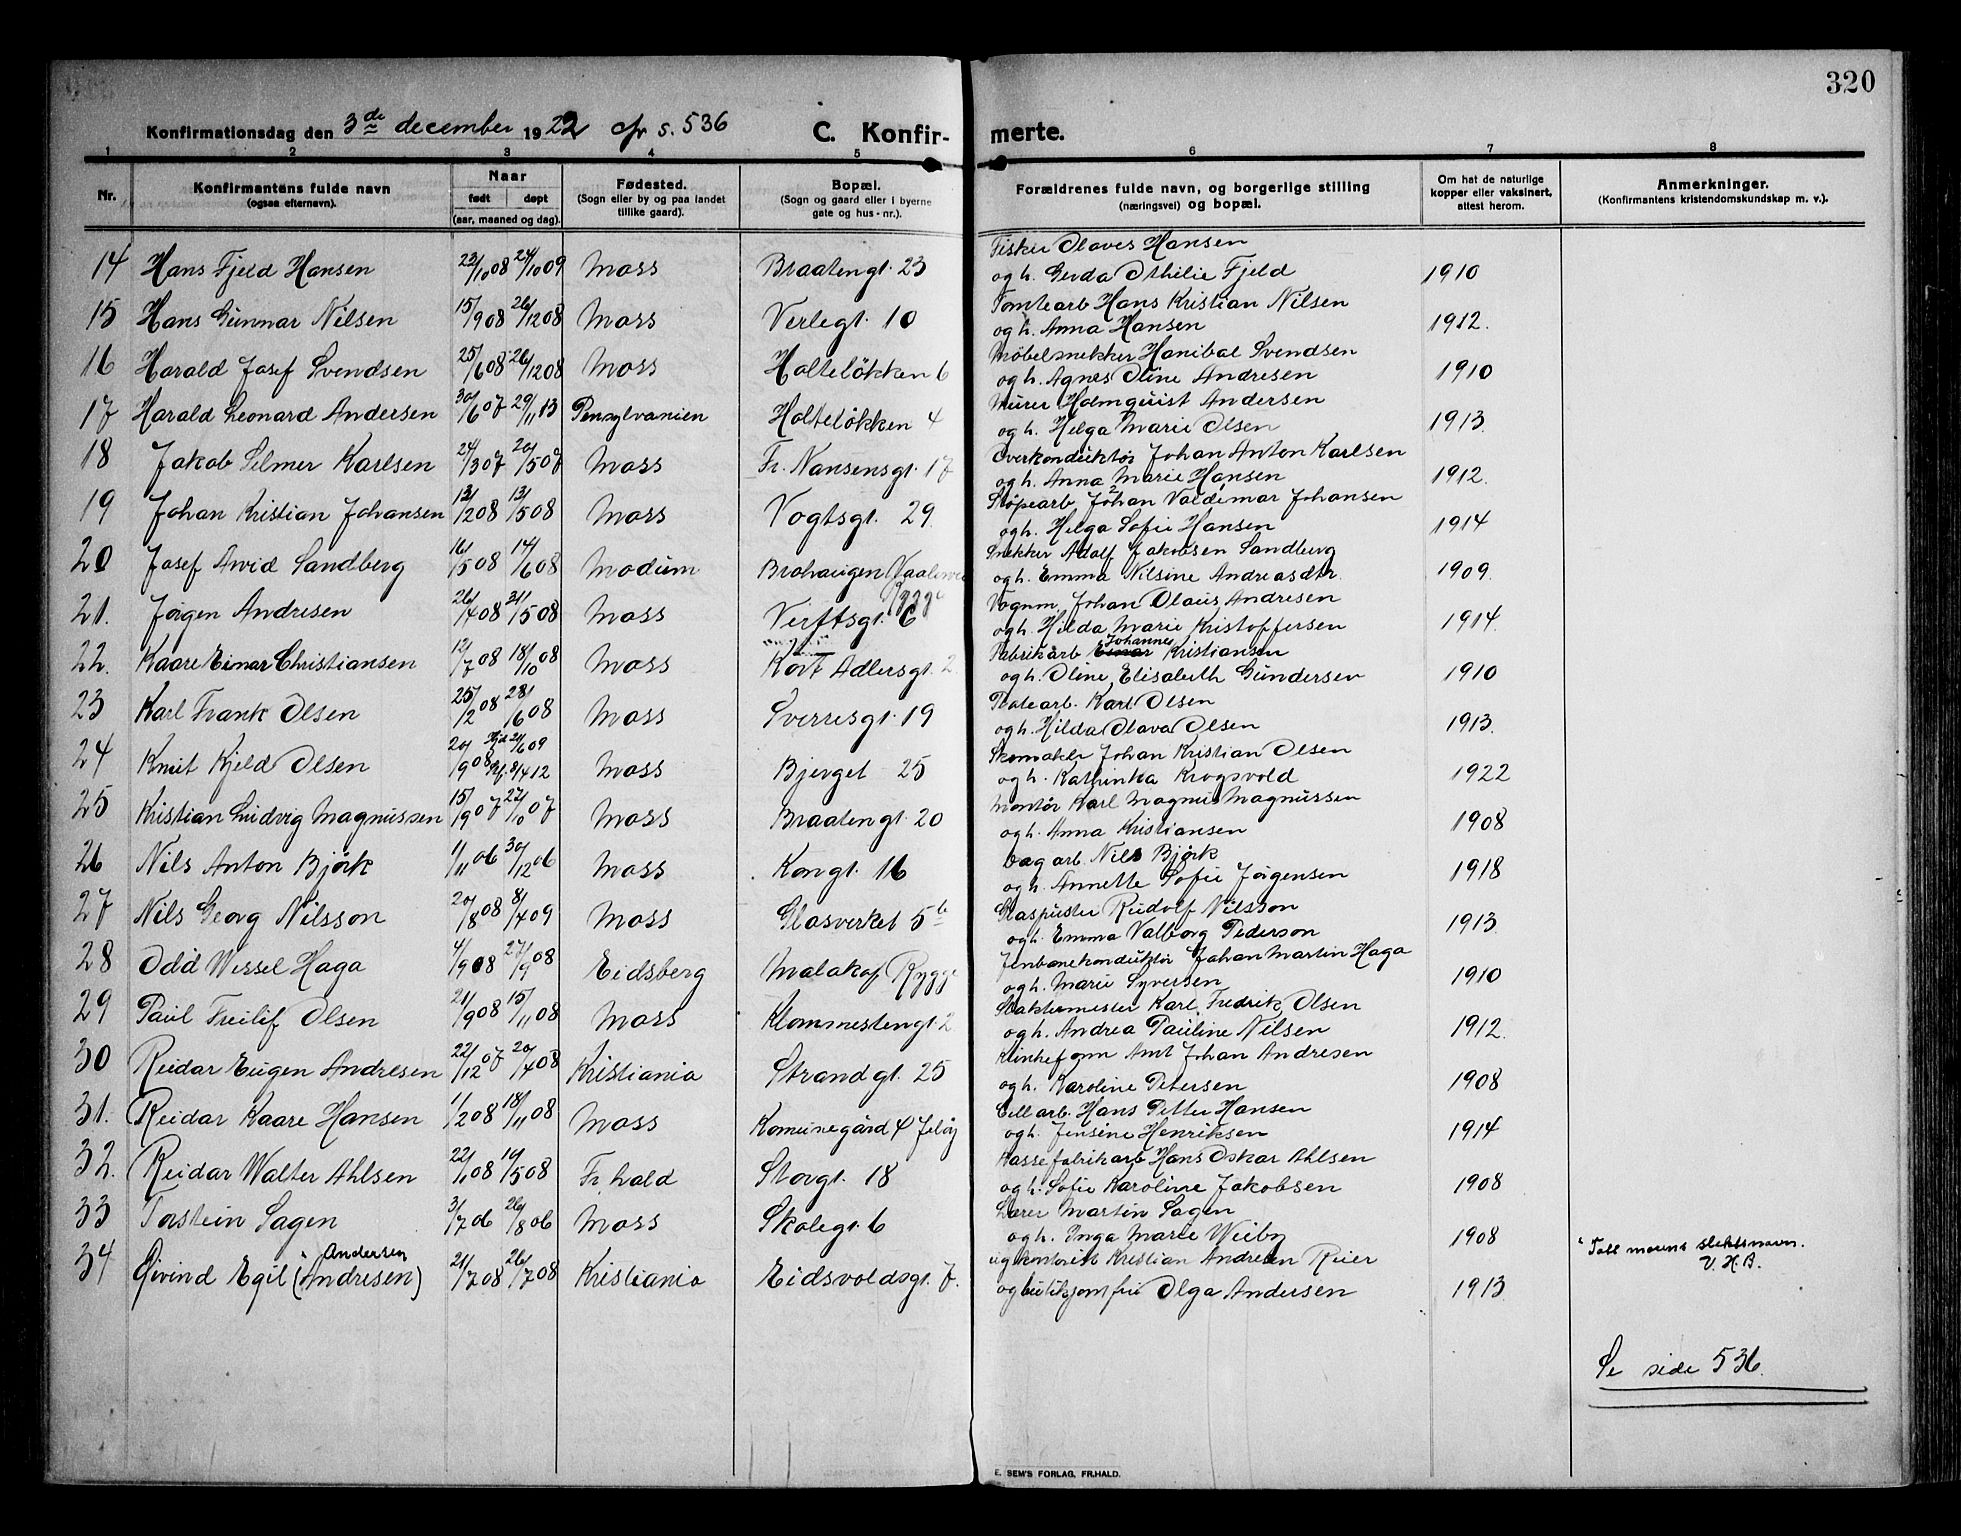 320
Konfirmationsdag den 3de december 1922 cfr s. 536 C. Konfir- merte.
1 2 3 4 5 6 7 8
Nr. Konfirmantens fulde navn (ogsaa efternavn). Naar født døpt (aar, maaned og dag). Fødested. (Sogn eller by og paa landet tillike gaard). Bopæl. (Sogn og gaard eller i byerne gate og hus-nr.). Forældrenes fulde navn, og borgerlige stilling (næringsvei) og bopæl. Om hat de naturlige kopper eller vaksinert, attest herom. Anmerkninger. (Konfirmantens kristendomskundskap m. v.).
Fisker Olaves Hansen
14 Hans Fjeld Hansen 23/10 08 24/10 09 Moss Braatengt. 23 og h. Gerda Othilie Fjeld 1910
Tomtearb Hans Kristian Nilsen
15 Hans Gunnar Nilsen 15/9 08 26/12 08 Moss Verlegt. 10 og h. Anna Hansen 1912.
Møbelsnekker Hanibal Svendsen
16 Harald Josef Svendsen 25/6 08 26/12 08 Moss Holteløkken 6 og h. Agnes Oline Andresen 1910
Murer Holmquist Andersen
17 Harald Leonard Andersen 30/6 07 29/11 13 Pensylvanien Holteløkken 4 og h. Helga Marie Olsen 1913
Overkonduktør Johan Anton Karlsen
18 Jakob Selmer Karlsen 24/3 07 20/5 07 Moss Fr. Nansensgt. 17 og h. Anna Marie Hansen 1912.
Støpearb Johan Valdemar Johansen
19 Johan Kristian Johansen 12/12 08 13/5 08 Moss Vogtsgt. 29 og h. Helga Sofie Hansen 1914
Snekker Adolf Jakobsen Sandberg
20 Josef Arvid Sandberg 16/5 08 14/6 08 Modum Brohaugen Vaalerveien Rygge og h. Emma Nilsine Andreasdtr. 1909
Vognm. Johan Olaus Andresen
21. Jørgen Andresen 26/4 08 31/5 08 Moss Verftsgt. 6 og h. Hilda Marie Kristoffersen 1914
Fabrikarb Einar Johannes Kristiansen
22. Kaare Einar Christiansen 12/7 08 18/10 08 Moss Kort Adlersgt. 2 og h. Oline Elisabeth Gundersen 1910
Platearb. Karl Olsen
23 Karl Frank Olsen 25/2 08 28/6 08 Moss Sverresgt. 19 og h. Hilda Olava Olsen 1913
Skomaker Johan Kristian Olsen
24 Knut Kjeld Olsen 20/9 08 Hjd 21/6 09 Kf. 8/4 12 Moss Bjerget 25 og h. Kathinka Krogsvold 1922
Montør Karl Magnus Magnussen
25 Kristian Ludvig Magnussen 15/9 07 27/10 07 Moss Braatengt. 20 og h. Anna Kristiansen 1908
Dagarb. Nils Bjørk
26 Nils Anton Bjørk 1/11 06 30/12 06 Moss Kongt. 16 og h. Annette Sofie Jørgensen 1918
Glaspuster Rudolf Nilsson
27 Nils Georg Nilsson 20/8 08 8/4 09 Moss Glasverket 5b og h. Emma Valborg Pederson 1913
Jernbanekonduktør Johan Martin Haga
28 Odd Wessel Haga 4/9 08 27/9 08 Eidsberg Malakof Rygge og h. Marie Syversen 1910
Slaktermester Karl Fredrik Olsen
29 Paul Freilif Olsen 21/9 08 15/11 08 Moss Klommestengt. 2 og h. Andrea Pauline Nilsen 1912
Amt Johan Andresen
30 Reidar Eugen Andresen 22/12 07 20/4 08 Kristiania Strandgt. 25 og h. Karoline Petersen 1908
Cellarb. Hans Petter Hansen
31. Reidar Kaare Hansen 1/2 08 18/11 08 Moss Komunegård 4 Jeløy og h. Jensine Henriksen 1914
Kassefabrikarb Hans Oskar Ahlsen
32. Reidar Walter Ahlsen 22/1 08 10/5 08 Fr.hald Storgt. 18 og h. Sofie Karoline Jakobsen 1908
Lærer Martin Sagen
33 Torstein Sagen 3/7 06 26/8 06 Moss Skolegt. 6 og h. Inga Marie Weiby 1908
ugkontorist Kristian Andresen Reier
34 Øivind Egil (Andresen) Andersen 21/7 08 26/7 08 Kristiania Eidsvoldsgt. 7. og butikjomfru Olga Andersen 1913 Tatt morens slektsnavn.
V. H. B.
Se side 536.
E. SEM'S FORLAG, FR.HALD.